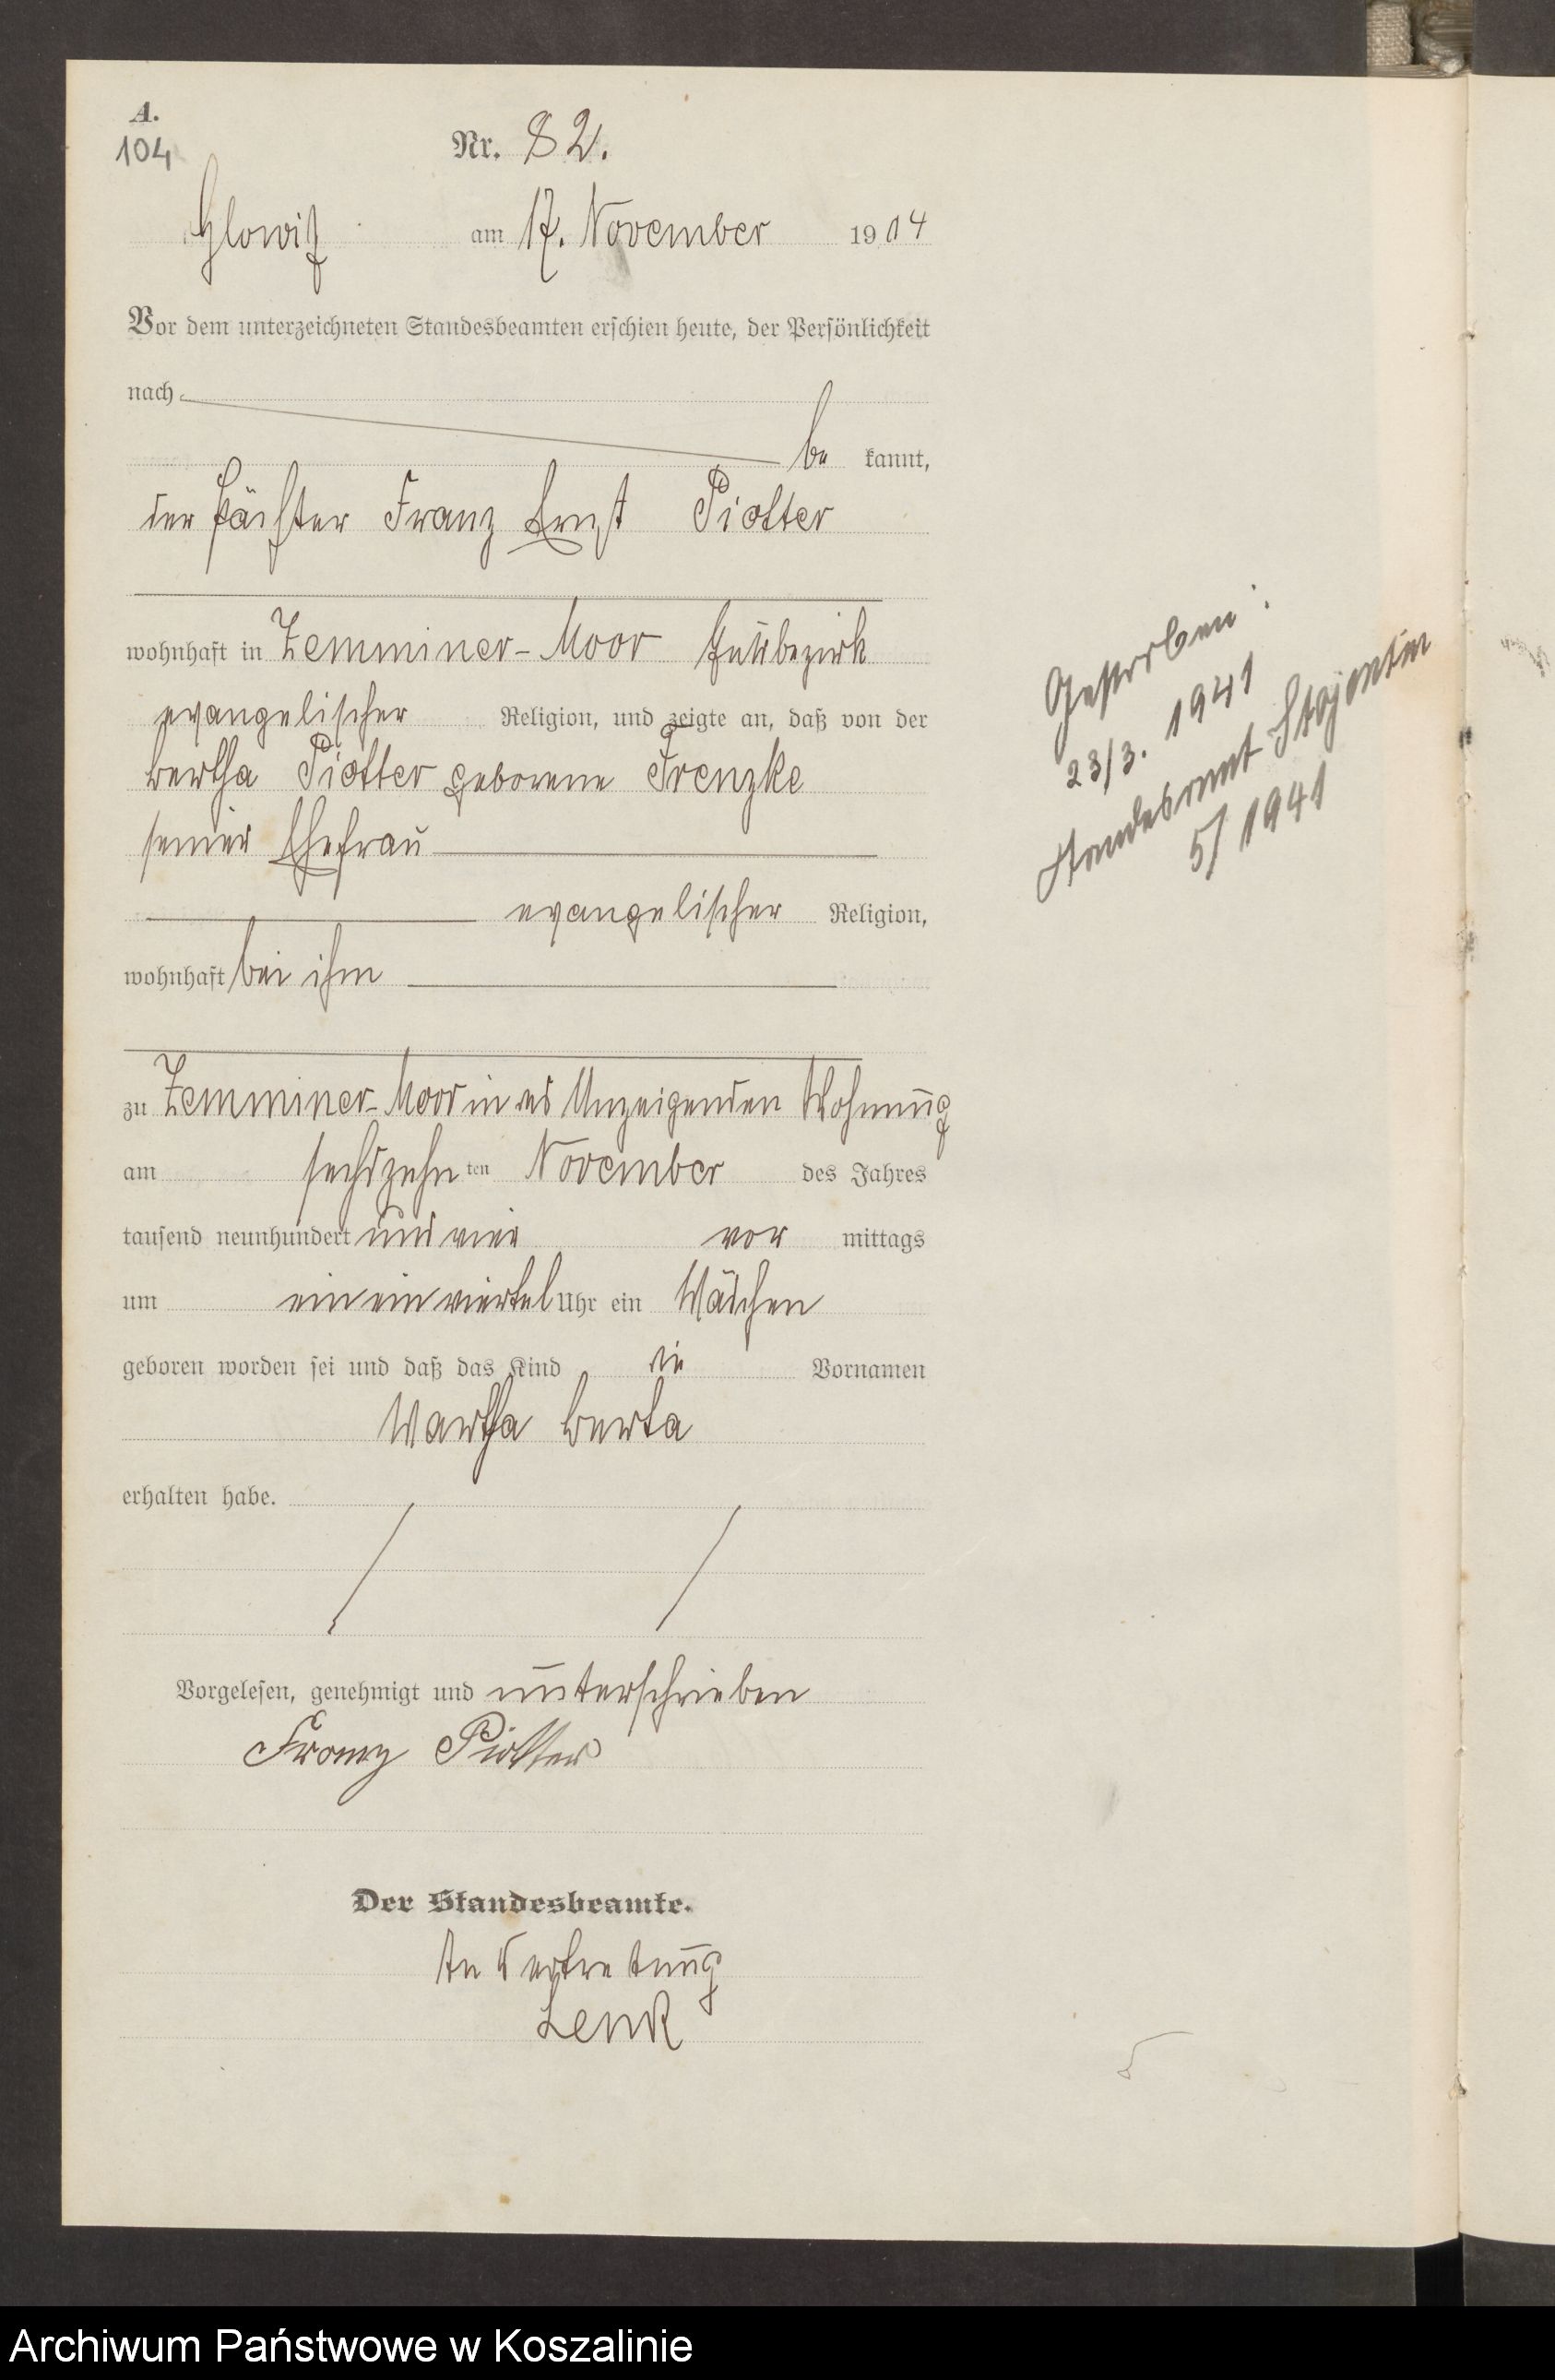 A.
104
Nr. 82.
Glowitz am 17. November 1904
Vor dem unterzeichneten Standesbeamten erschien heute, der Persönlichkeit
nach
be kannt,
der Pächter Franz Ernst Piotter
wohnhaft in Zemminer-Moor Gutsbezirk
evangelischer Religion, und zeigte an, daß von der
Bertha Piotter geborene Frenzke
seiner Ehefrau
evangelischer Religion,
wohnhaft bei ihm
zu Zemminer-Moor in des Anzeigenden Wohnung
am sechszehn ten November des Jahres
tausend neunhundert und vier vor mittags
um ein ein viertel Uhr ein Mädchen
geboren worden sei und daß das Kind die Vornamen
Martha Berta
erhalten habe.
Vorgelesen, genehmigt und unterschrieben
Franz Piotter
Der Standesbeamte.
In Vertretung
Lenk
Gestorben:
23/3. 1941
Standesamt Stojentin
5/1941
Archiwum Państwowe w Koszalinie